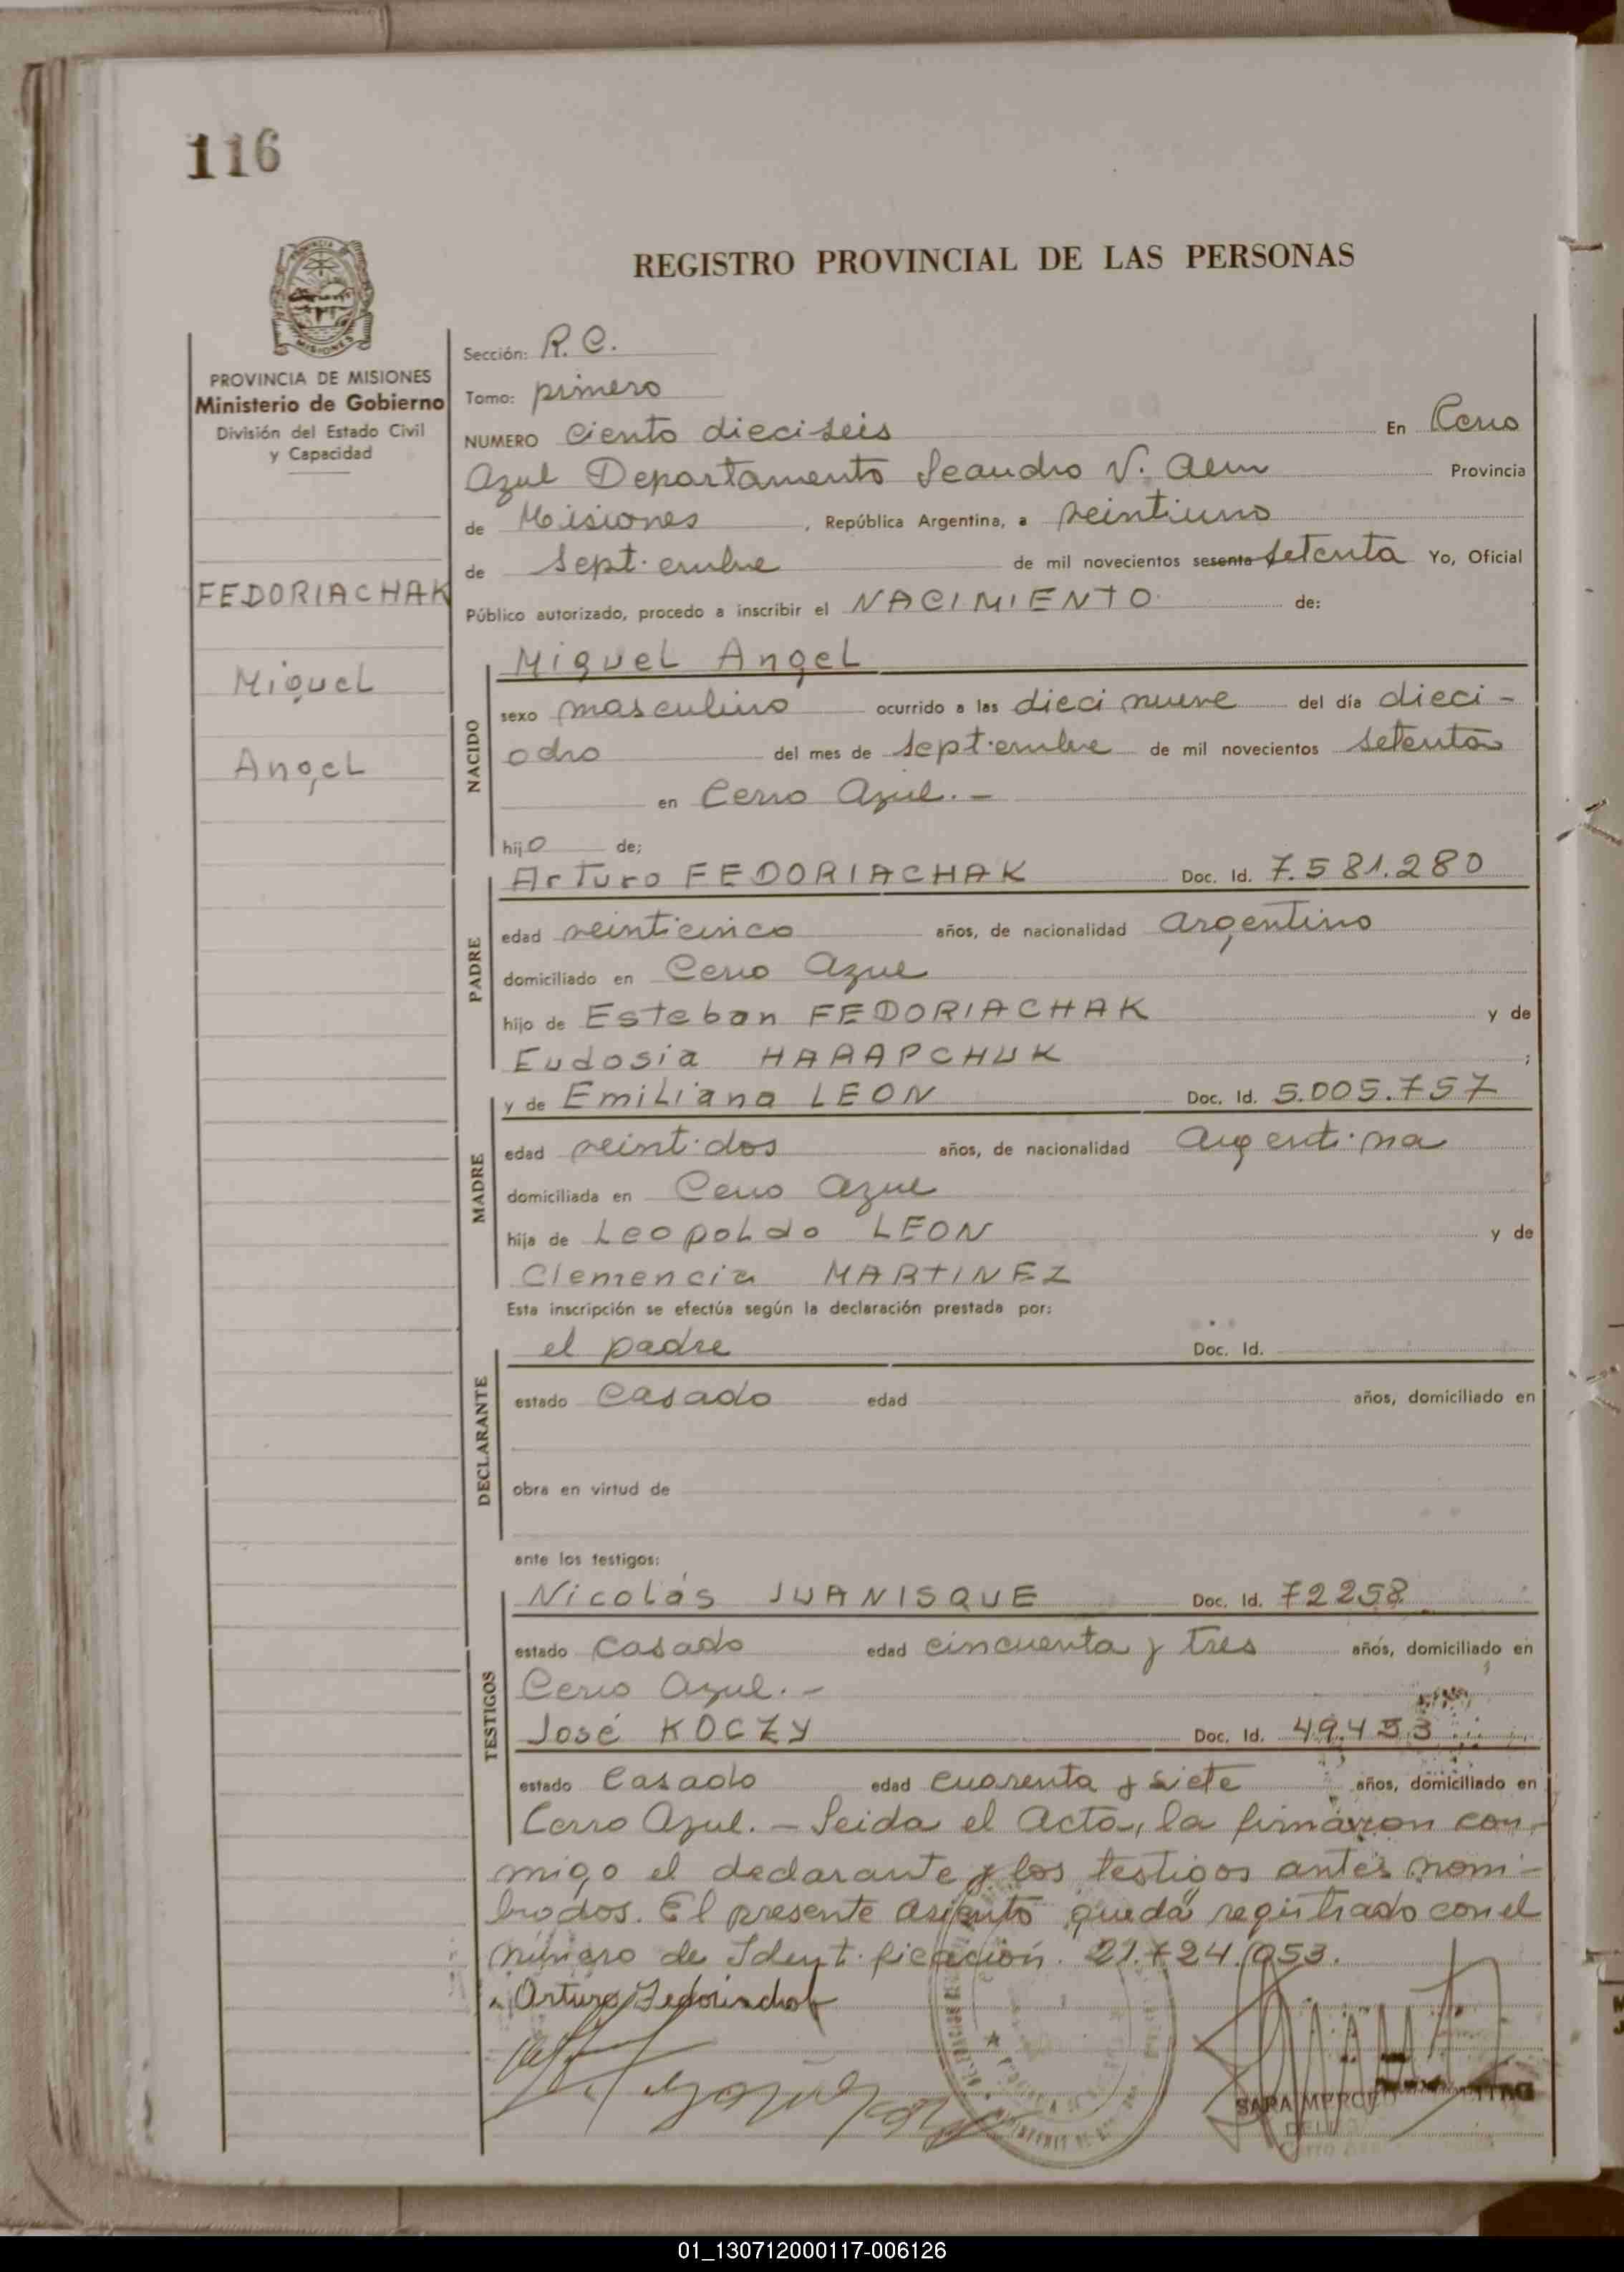 116
REGISTRO PROVINCIAL DE LAS PERSONAS
MISIONES
PROVINCIA DE MISIONES
Ministerio de Gobierno
División del Estado Civil
y Capacidad
FEDORIACHAK
Miguel
Angel
Sección: R. C.
Tomo: primero
NUMERO Ciento dieciseis En Cerro
Azul Departamento Leandro N. Alem Provincia
de Misiones, República Argentina, a veintiuno
de septiembre de mil novecientos sesenta setenta Yo, Oficial
Público autorizado, procedo a inscribir el NACIMIENTO de:
NACIDO
Miguel Angel
sexo masculino ocurrido a las diecinueve del día dieci-
ocho del mes de septiembre de mil novecientos setenta
en Cerro Azul. -
hijo de;
PADRE
Arturo FEDORIACHAK Doc. Id. 7.581.280
edad veinticinco años, de nacionalidad argentino
domiciliado en Cerro Azul
hijo de Esteban FEDORIACHAK y de
Eudosia HARAPCHUK ;
MADRE
y de Emiliana LEON Doc. Id. 5.005.757
edad veintidos años, de nacionalidad argentina
domiciliada en Cerro Azul
hija de Leopoldo LEON y de
Clemencia MARTINEZ
Esta inscripción se efectúa según la declaración prestada por:
DECLARANTE
el padre Doc. Id.
estado casado edad años, domiciliado en
obra en virtud de
ante los testigos:
TESTIGOS
Nicolás JUANISQUE Doc. Id. 72258
estado casado edad cincuenta y tres años, domiciliado en
Cerro Azul. -
José KOCZY Doc. Id. 49.453
estado casado edad cuarenta y siete años, domiciliado en
Cerro Azul. - Leida el Acta, la firmaron con-
migo el declarante y los testigos antes nom-
brados. El presente asiento queda registrado con el
número de Identificación. 21.724.053.
Arturo Fedoriachak
SARA
01_130712000117-006126